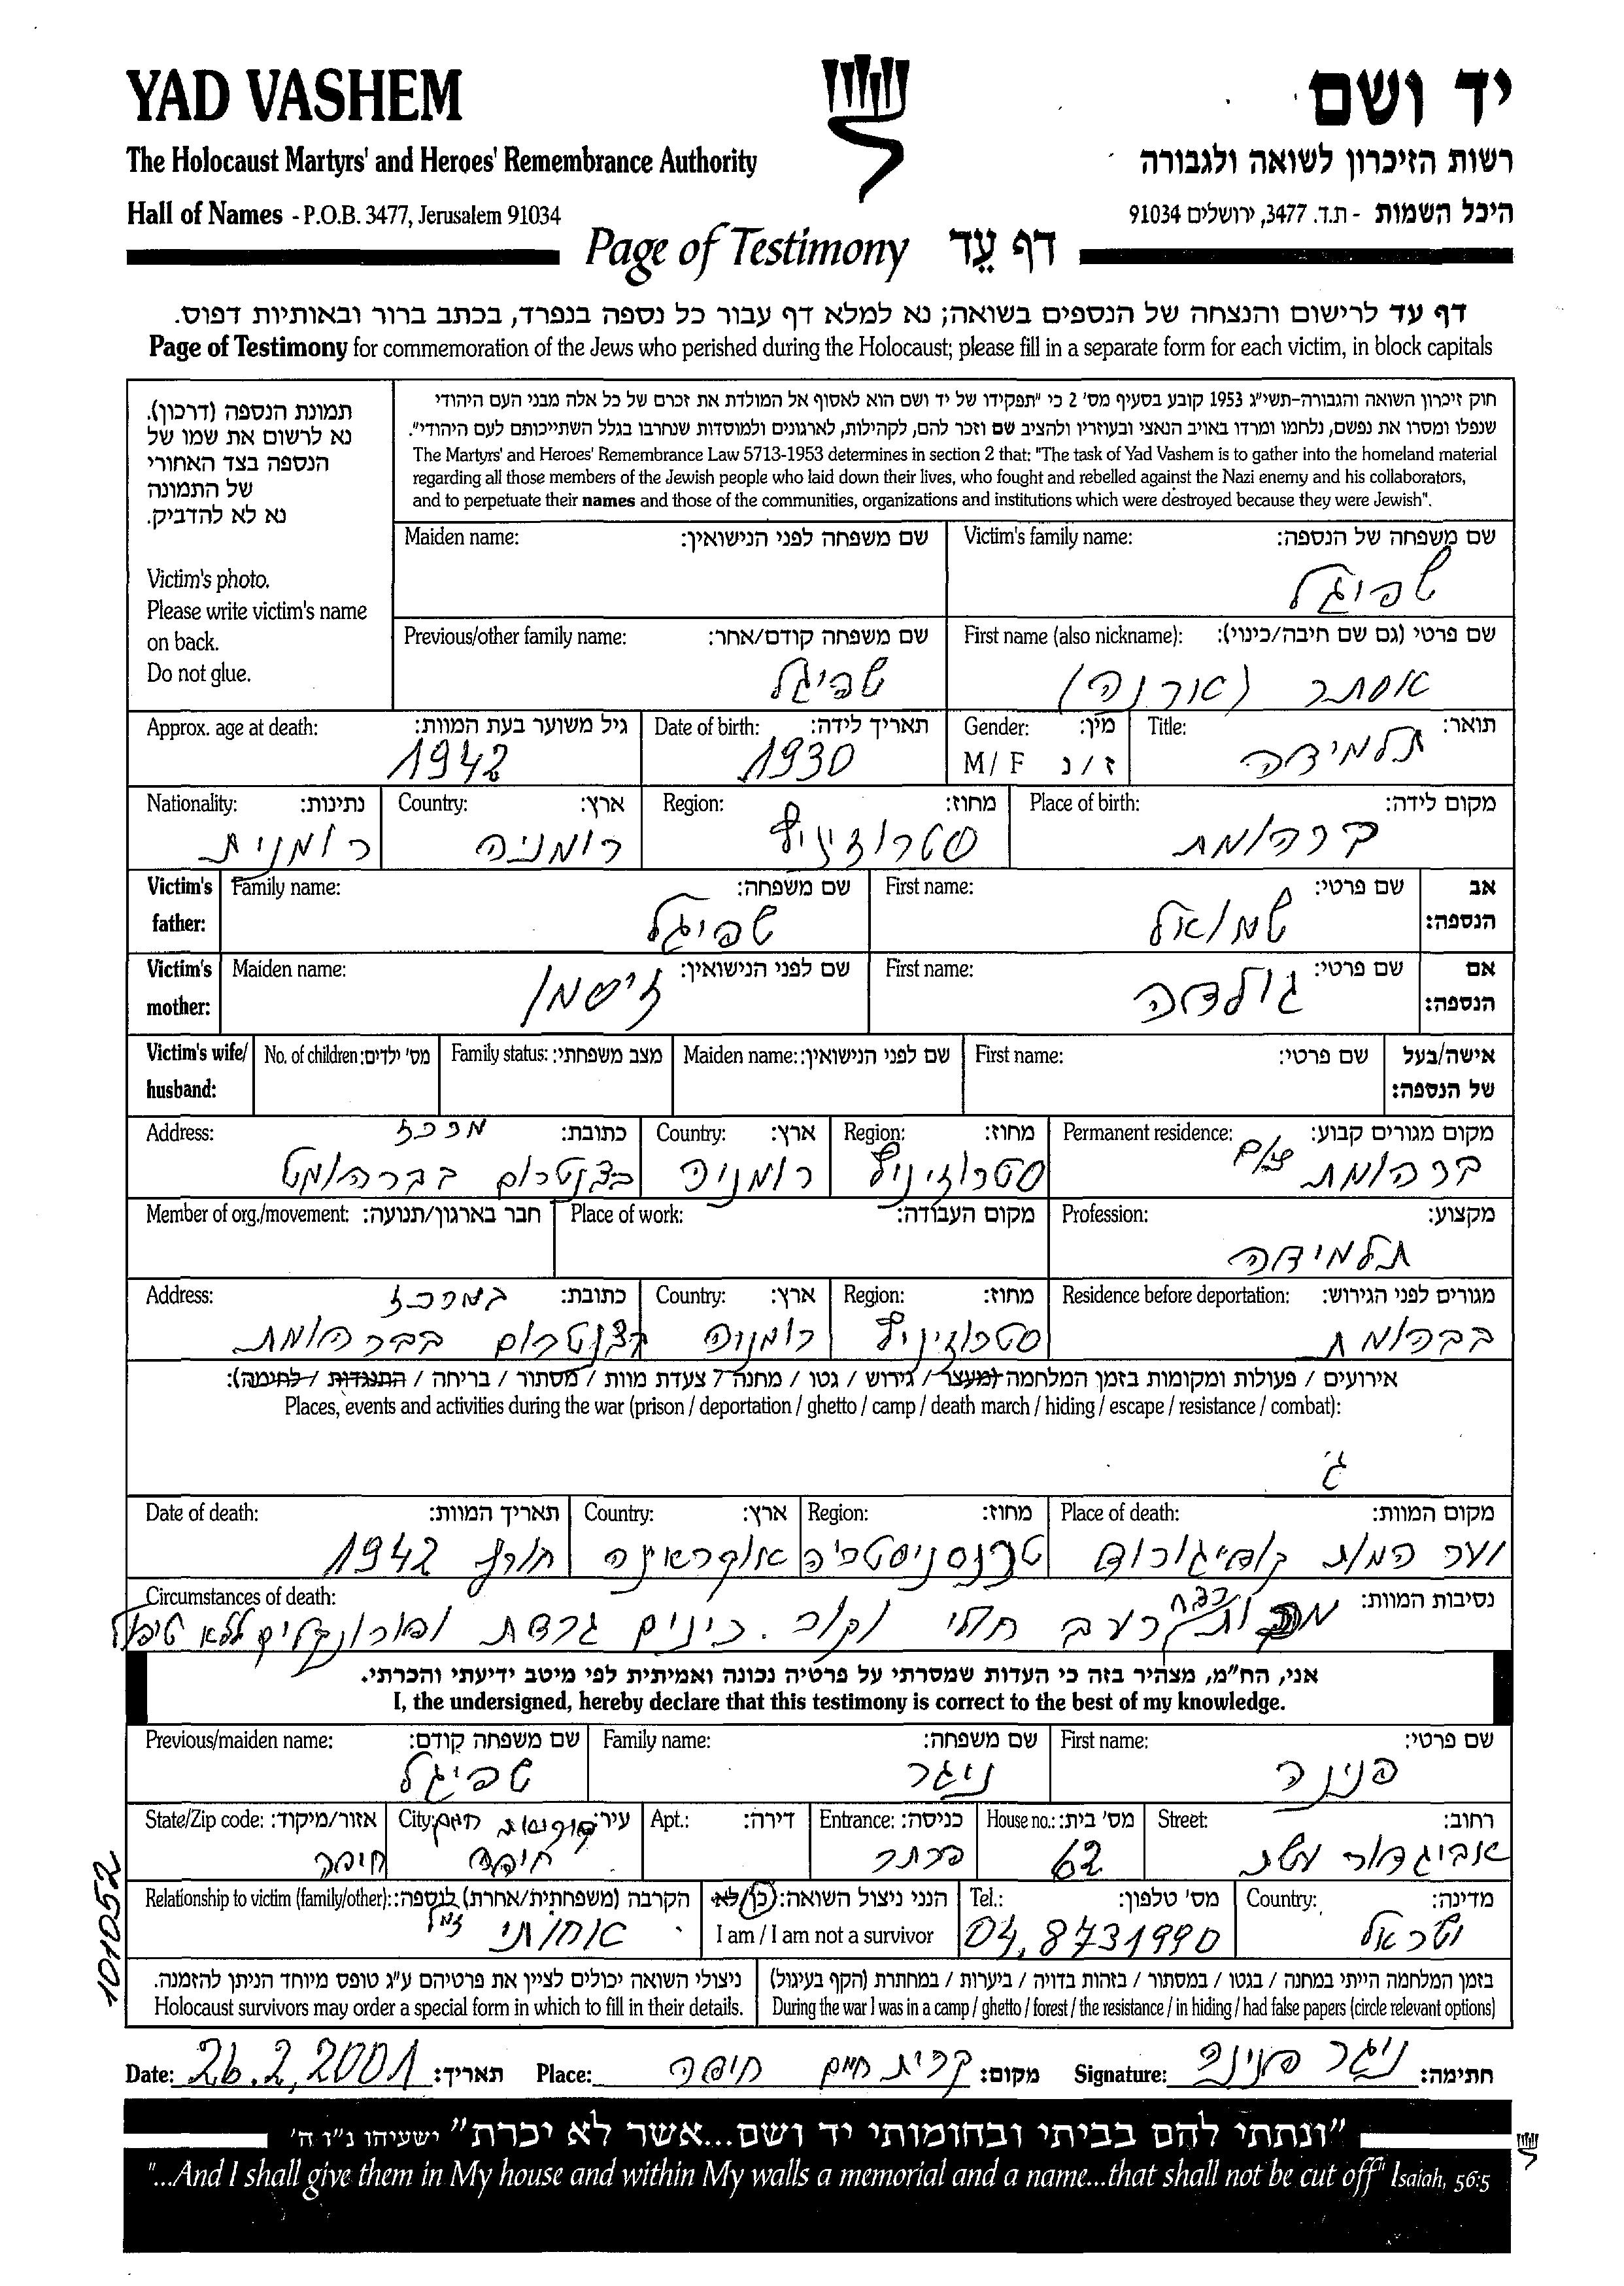 YAD VASHEM
יד ושם
The Holocaust Martyrs' and Heroes' Remembrance Authority
רשות הזיכרון לשואה ולגבורה
Hall of Names - P.O.B. 3477, Jerusalem 91034
היכל השמות - ת.ד. 3477, ירושלים 91034
Page of Testimony דף עֵד
דף עד לרישום והנצחה של הנספים בשואה; נא למלא דף עבור כל נספה בנפרד, בכתב ברור ובאותיות דפוס.
Page of Testimony for commemoration of the Jews who perished during the Holocaust; please fill in a separate form for each victim, in block capitals
תמונת הנספה (דרכון).
נא לרשום את שמו של
הנספה בצד האחורי
של התמונה
נא לא להדביק.
Victim's photo.
Please write victim's name
on back.
Do not glue.
חוק זיכרון השואה והגבורה-תשי"ג 1953 קובע בסעיף מס' 2 כי "תפקידו של יד ושם הוא לאסוף אל המולדת את זכרם של כל אלה מבני העם היהודי
שנפלו ומסרו את נפשם, נלחמו ומרדו באויב הנאצי ובעוזריו ולהציב שם וזכר להם, לקהילות, לארגונים ולמוסדות שנחרבו בגלל השתייכותם לעם היהודי".
The Martyrs' and Heroes' Remembrance Law 5713-1953 determines in section 2 that: "The task of Yad Vashem is to gather into the homeland material
regarding all those members of the Jewish people who laid down their lives, who fought and rebelled against the Nazi enemy and his collaborators,
and to perpetuate their names and those of the communities, organizations and institutions which were destroyed because they were Jewish".
Victim's family name: שם משפחה של הנספה:
שפיגל
Maiden name: שם משפחה לפני הנישואין:
First name (also nickname): שם פרטי (גם שם חיבה/כינוי):
אסתר (ארנה)
Previous/other family name: שם משפחה קודם/אחר:
שפיגל
Title: תואר:
תלמידה
Gender: מין:
M / F ז / נ
Date of birth: תאריך לידה:
1930
Approx. age at death: גיל משוער בעת המוות:
1942
Place of birth: מקום לידה:
ברהומת
Region: מחוז:
סטרוז'יניץ
Country: ארץ:
רומניה
Nationality: נתינות:
רומנית
Victim's father: אב הנספה:
First name: שם פרטי:
שמואל
Family name: שם משפחה:
שפיגל
Victim's mother: אם הנספה:
First name: שם פרטי:
גולדה
Maiden name: שם לפני הנישואין:
זיסמן
Victim's wife/ husband: אישה/בעל של הנספה:
First name: שם פרטי:
Maiden name: שם לפני הנישואין:
Family status: מצב משפחתי:
No. of children: מס' ילדים:
Permanent residence: מקום מגורים קבוע:
ברהומת
Region: מחוז:
סטרוז'יניץ
Country: ארץ:
רומניה
Address: כתובת:
מרכז
בצנטרום בברהומט
Profession: מקצוע:
תלמידה
Place of work: מקום העבודה:
Member of org./movement: חבר בארגון/תנועה:
Residence before deportation: מגורים לפני הגירוש:
בברהומת
Region: מחוז:
סטרוז'יניץ
Country: ארץ:
רומניה
Address: כתובת:
במרכז
בצנטרום בברהומת
אירועים / פעולות ומקומות בזמן המלחמה (מעצר / גירוש / גטו / מחנה / צעדת מוות / מסתור / בריחה / התנגדות / לחימה):
Places, events and activities during the war (prison / deportation / ghetto / camp / death march / hiding / escape / resistance / combat):
Place of death: מקום המוות:
קופייגורוד
Region: מחוז:
טרנסניסטריה
Country: ארץ:
אוקראינה
Date of death: תאריך המוות:
חורף 1942
Circumstances of death: נסיבות המוות:
רעב חולי וקור. כינים גרדת ופורונקלים ללא טיפול
אני, הח"מ, מצהיר בזה כי העדות שמסרתי על פרטיה נכונה ואמיתית לפי מיטב ידיעתי והכרתי.
I, the undersigned, hereby declare that this testimony is correct to the best of my knowledge.
First name: שם פרטי:
פנינה
Family name: שם משפחה:
ניגר
Previous/maiden name: שם משפחה קודם:
שפיגל
Street: רחוב:
אביגדור
House no.: מס' בית:
62
Entrance: כניסה:
Apt.: דירה:
City: עיר:
קרית חיים
חיפה
State/Zip code: אזור/מיקוד:
חיפה
Country: מדינה:
ישראל
Tel.: מס' טלפון:
04.8731990
הנני ניצול השואה: כן/לא
I am / I am not a survivor
Relationship to victim (family/other): הקרבה (משפחתית/אחרת) לנספה:
אחותי ז"ל
בזמן המלחמה הייתי במחנה / בגטו / במסתור / בזהות בדויה / ביערות / במחתרת (הקף בעיגול)
During the war I was in a camp / ghetto / forest / the resistance / in hiding / had false papers (circle relevant options)
ניצולי השואה יכולים לציין את פרטיהם ע"ג טופס מיוחד הניתן להזמנה.
Holocaust survivors may order a special form in which to fill in their details.
101052
Date: 26.2.2001 תאריך: Place: קרית חיים חיפה מקום: Signature: ניגר פנינה חתימה:
"ונתתי להם בביתי ובחומותי יד ושם...אשר לא יכרת" ישעיהו נ"ו ה'
"...And I shall give them in My house and within My walls a memorial and a name...that shall not be cut off" Isaiah, 56:5